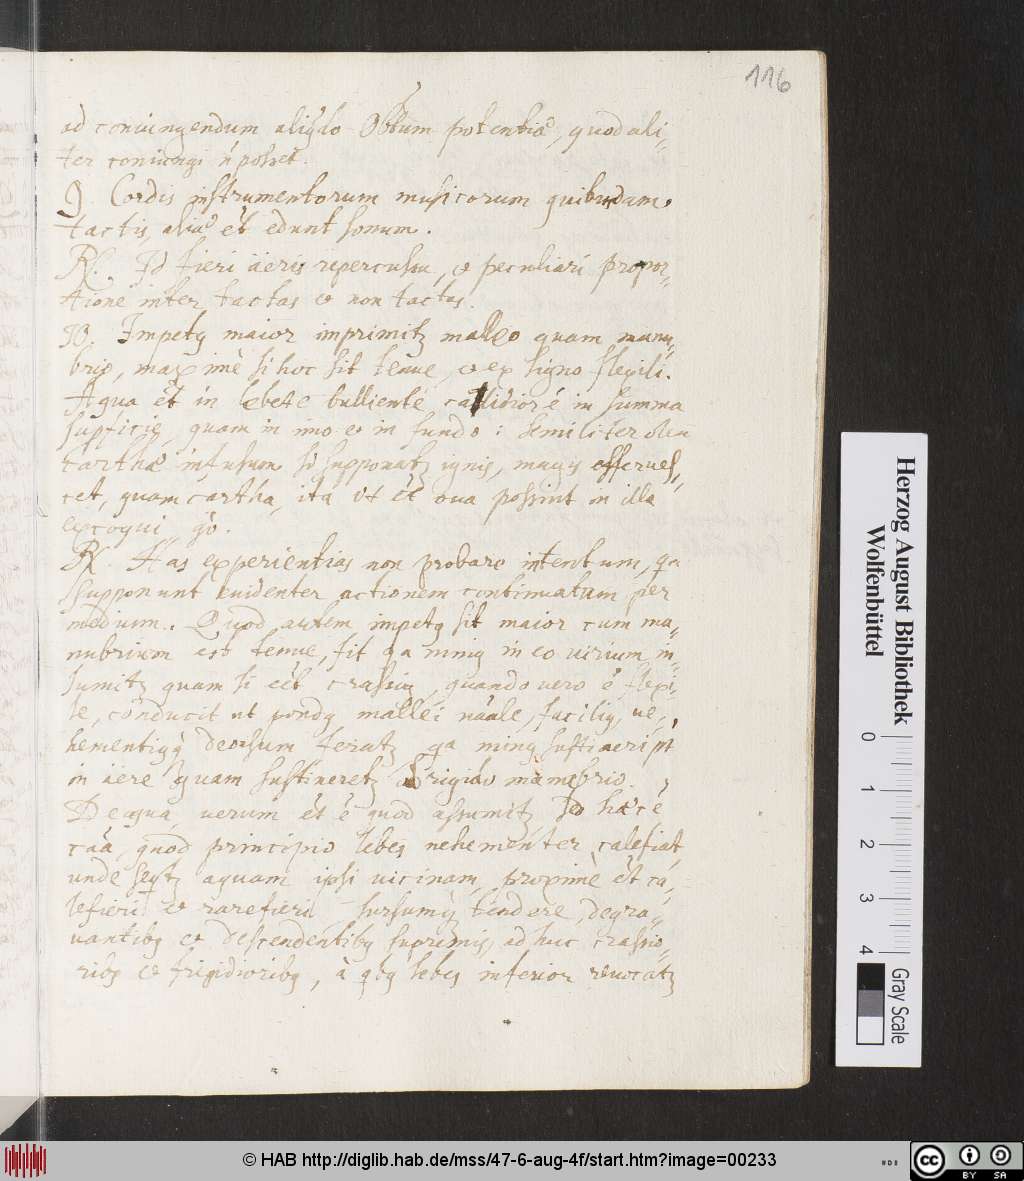 116
ad coniungendum aliq̃do Obtum potentiæ, quod ali-
ter coniungi ñ posset.
9. Cordis instrumentorum musicorum quibusdam
tactis, aliæ et̃ edunt sonum.
R. Id fieri äeris repercussu, et peculiari propor-
tione inter tactas et non tactas.
10. Impetꝰ maior imprimitr malleo quam manu-
brio, max imè si hoc sit tenue, et ex ligno flexili.
Aqua et̃ in lebete bulliente callidior é in summa
supficie, quam in imo et in fundo: similiter oleu
carthæ infusum si supponatr ignis, magis efferues-
cet, quam cartha, ita ut et̃ oua possint in illa
excoqui
R. Has experientias non probare intentum, qa
supponunt euidenter actionem continuatam per
medium. Quod autem impetꝰ sit maior cum ma-
nubrium est tenue, fit qa minꝰ in eo virium in-
sumitr quam si eet̃ crassiꝰ, quando vero é flexi-
le, conducit ut pondꝰ mallei nãale, faciliꝰ, ue-
hementiꝰq̃ deorsum feratr qa minꝰ
in äere quam sustineretr à rigido manubrio.
De aqua verum et̃ é quod assumitr sed hæc é
caã, quod principio lebes uehementer calefiat,
unde seqtr aquam ipsi uicinam, proximè et̃ ca-
lefieri et rarefieri sursumq̃ tendere, degra-
uantibꝰ et descendentibꝰ supremis, adhuc crassio-
ribꝰ et frigidioribꝰ, à qbꝰ lebes inferior reuocatr
Herzog August Bibliothek
Wolfenbüttel
0 1 2 3 4
Gray Scale
© HAB http://diglib.hab.de/mss/47-6-aug-4f/start.htm?image=00233
cc BY SA